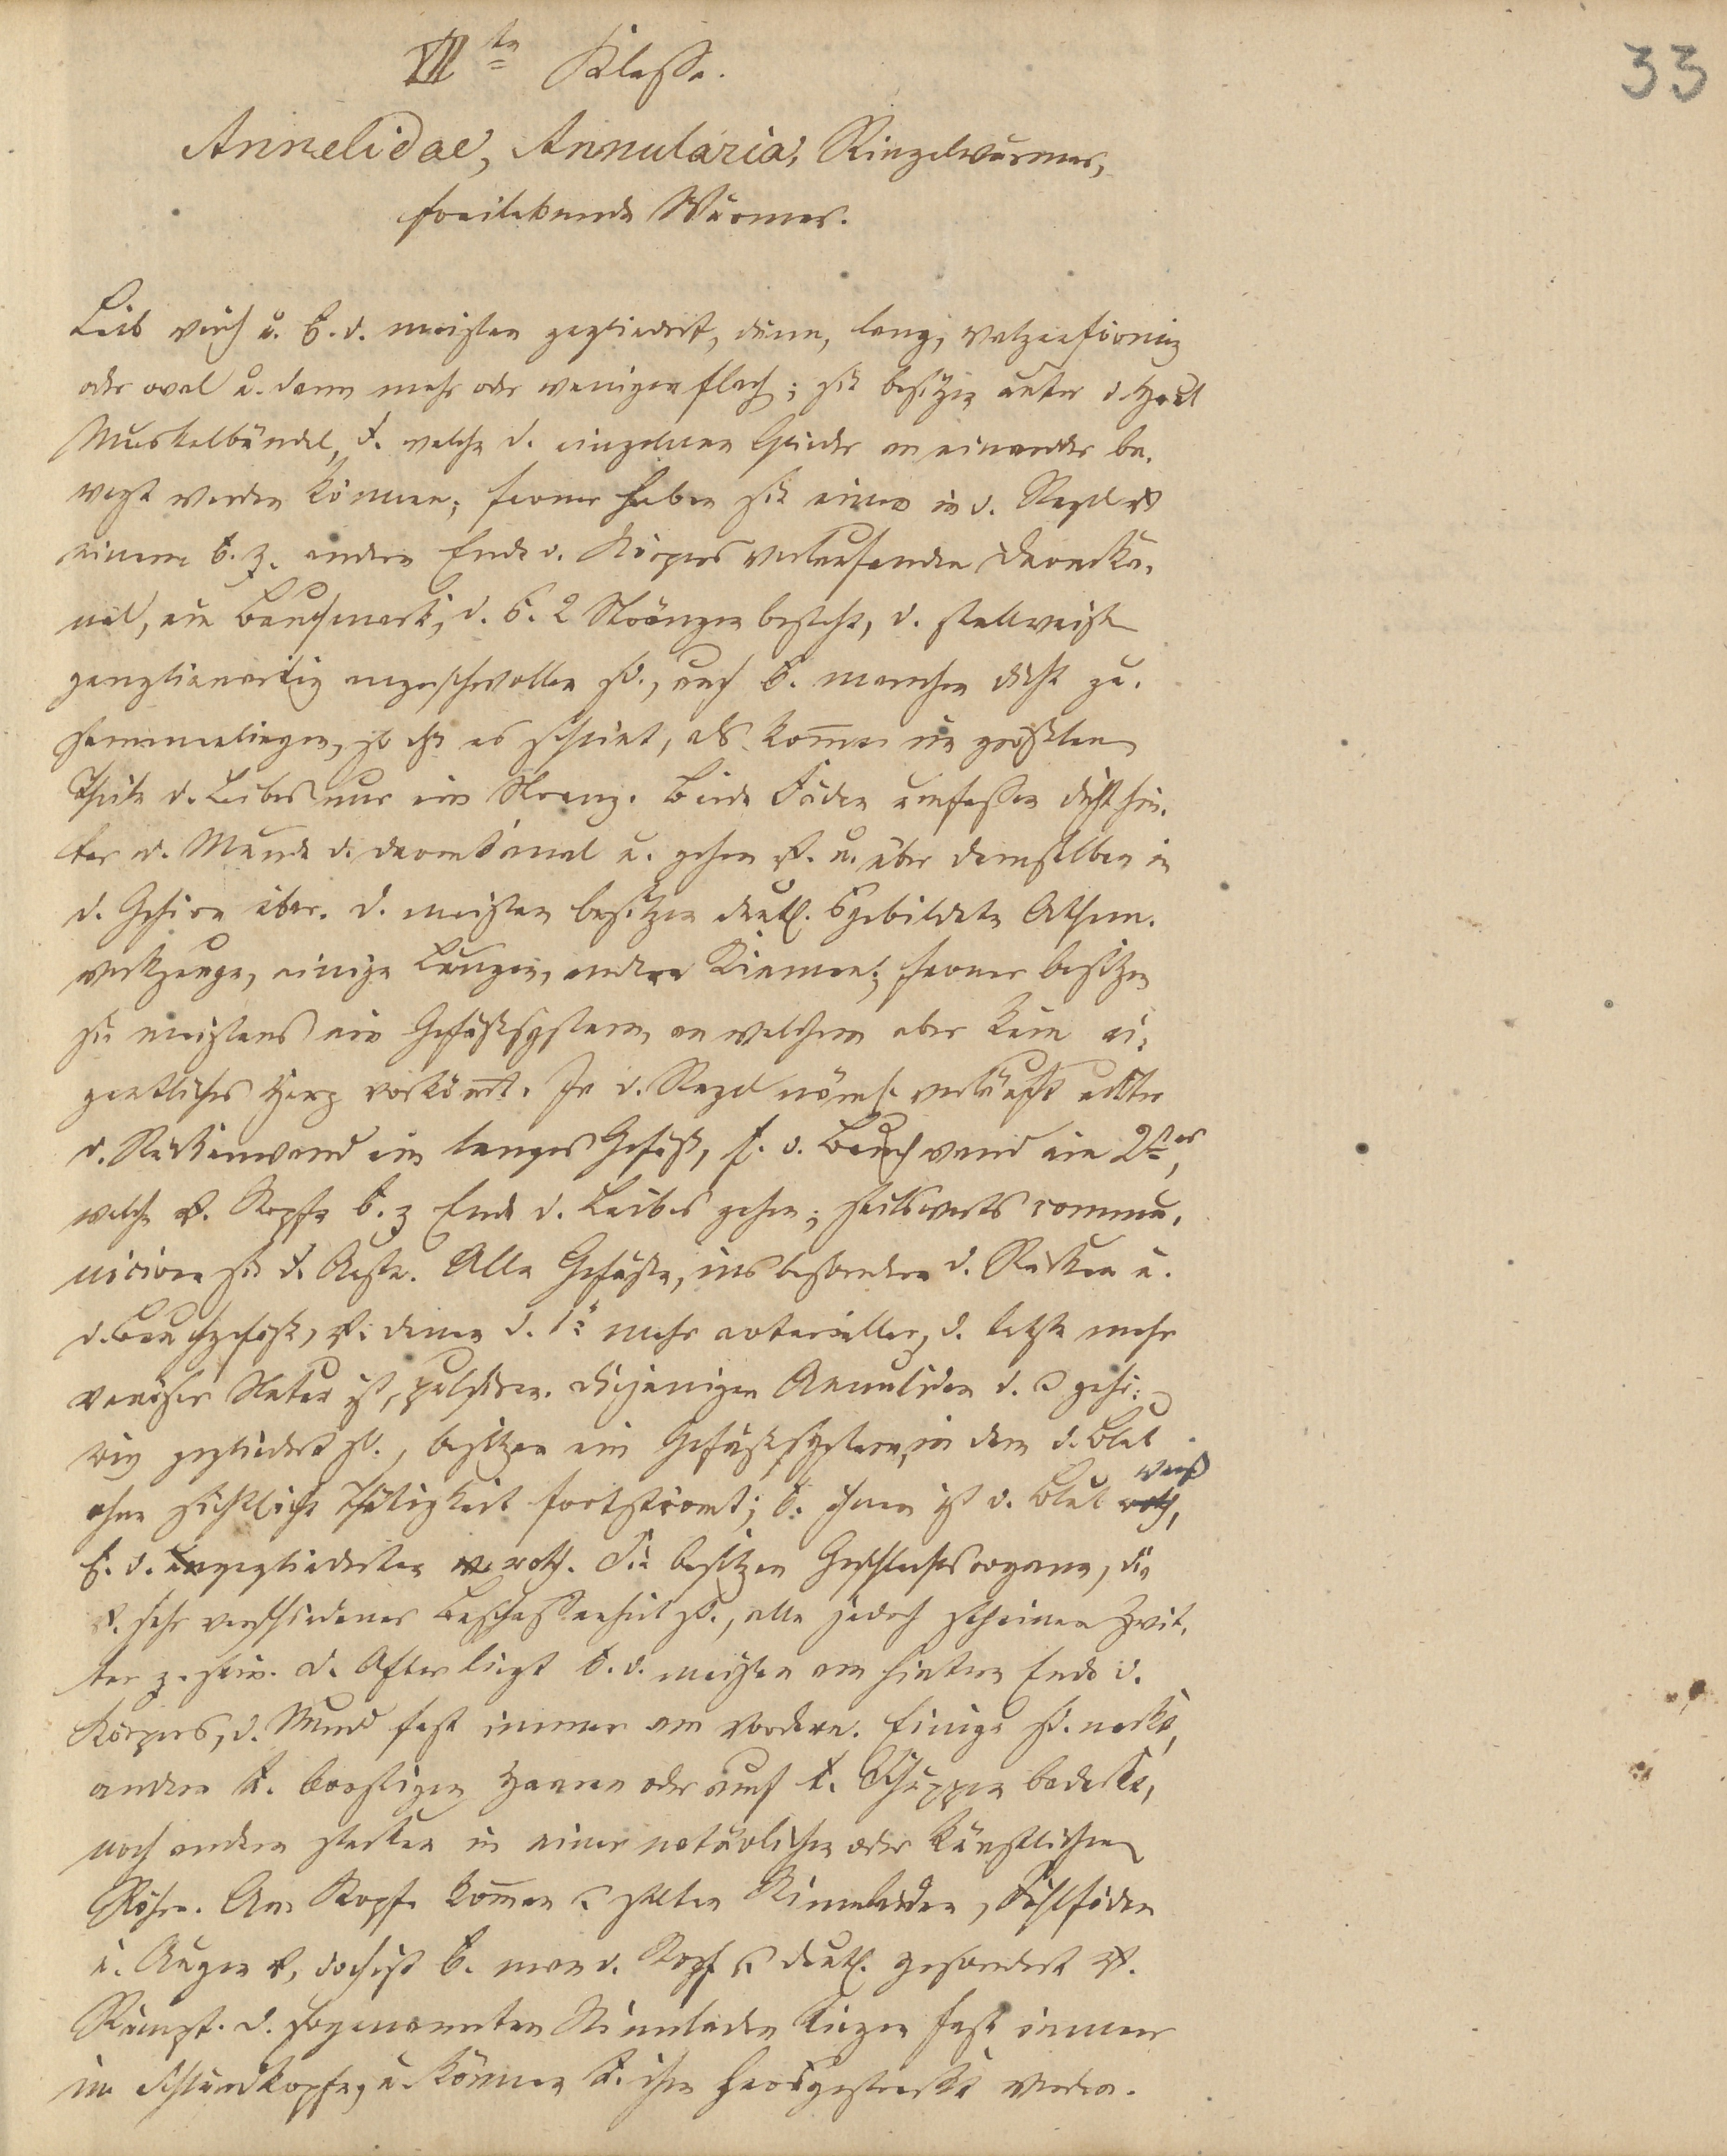 33
VII te Klasse.
Annelidae, Annularia, Ringelwürmer,
freilebende Würmer.
Leib weich u. b. d. meisten gegliedert, dünn, lang, walzenförmig
oder oval u. dann mehr oder weniger flach; sie besitzen unter d. Haut
Muskelbündel, d. welche d. einzelnen Glieder an einander be-
wegt werden können; ferner haben sie einen in d. Regel v.
einem b. z. andern Ende d. Körpers verlaufenden Darmka-
nal, ein Bauchmark, d. 2 Strängen besteht, d. stellweise
ganglienartig angeschwollen sd., auch b. manchen dicht zu-
sammenliegen, so es scheint, als komme im größten
Theile d. Leibes nur ein Strang. Beide Fäden umfassen dicht hin-
ter d. Munde d. Darmkanal u. gehen v. u. über demselben in
d. Gehirn über. D. meisten besitzen deutl. gebildete Athem-
werkzeuge, einige Lungen, andere Kiemen; ferner besitzen
sie meistens ein Gefäßsystem, an welchem aber kein ei-
gentliches Herz vorkömt. In d. Regel näml. verläuft unter
d. Rückenwand ein langes Gefäß, d. Bauchwand ein 2tes,
welche v. Kopfe b. z Ende d. Leibes gehen; seitwerts commu-
niciren sie d. Aeste. Alle Gefäße, ins besondere d. Rücken u.
d. Bauchgefäß, v. denen d. 1e mehr arterieller, d. letzte mehr
venöser Natur ist, pulsiren. Diejenigen Annuliden d. gehö-
rig gegliedert sd., besitzen ein Gefäßsystem, in dem d. Blut
ohne sichtliche Thätigkeit fortströmt; b. ihnen ist d. Blut roth, weiß
b. d. gegliederten roth. Sie besitzen Geschlechtsorgane, die
v. sehr verschiedener Beschaffenheit sd., alle jedoch scheinen Zwit-
ter z. sein. D. After liegt b. d. meisten am hintern Ende d.
Körpers, d. Mund fast immer am vordern. Einige sd. nackt,
andere borstigen Haaren oder auch Schuppen bedeckt,
noch andere stecken in einer natürlichen oder künstlichen
Röhre. Am Kopfe kommen selten Kinnladen, Fühlfäden
u. Augen v, doch ist b. d. Kopf deutl. gesondert v.
Rumpf. D. sogenannten Kinnladen liegen fast immer
im Schlundkopfe, u. können ihm herausgestreckt werden.